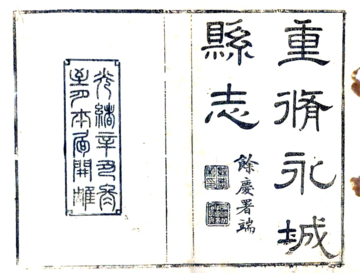 重脩永城
縣志
餘慶署端
光緒辛丑冬
至月本局開雕